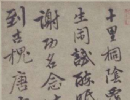 十里桐陰覆
生閒試醉眠
謝功名念
到古槐唐